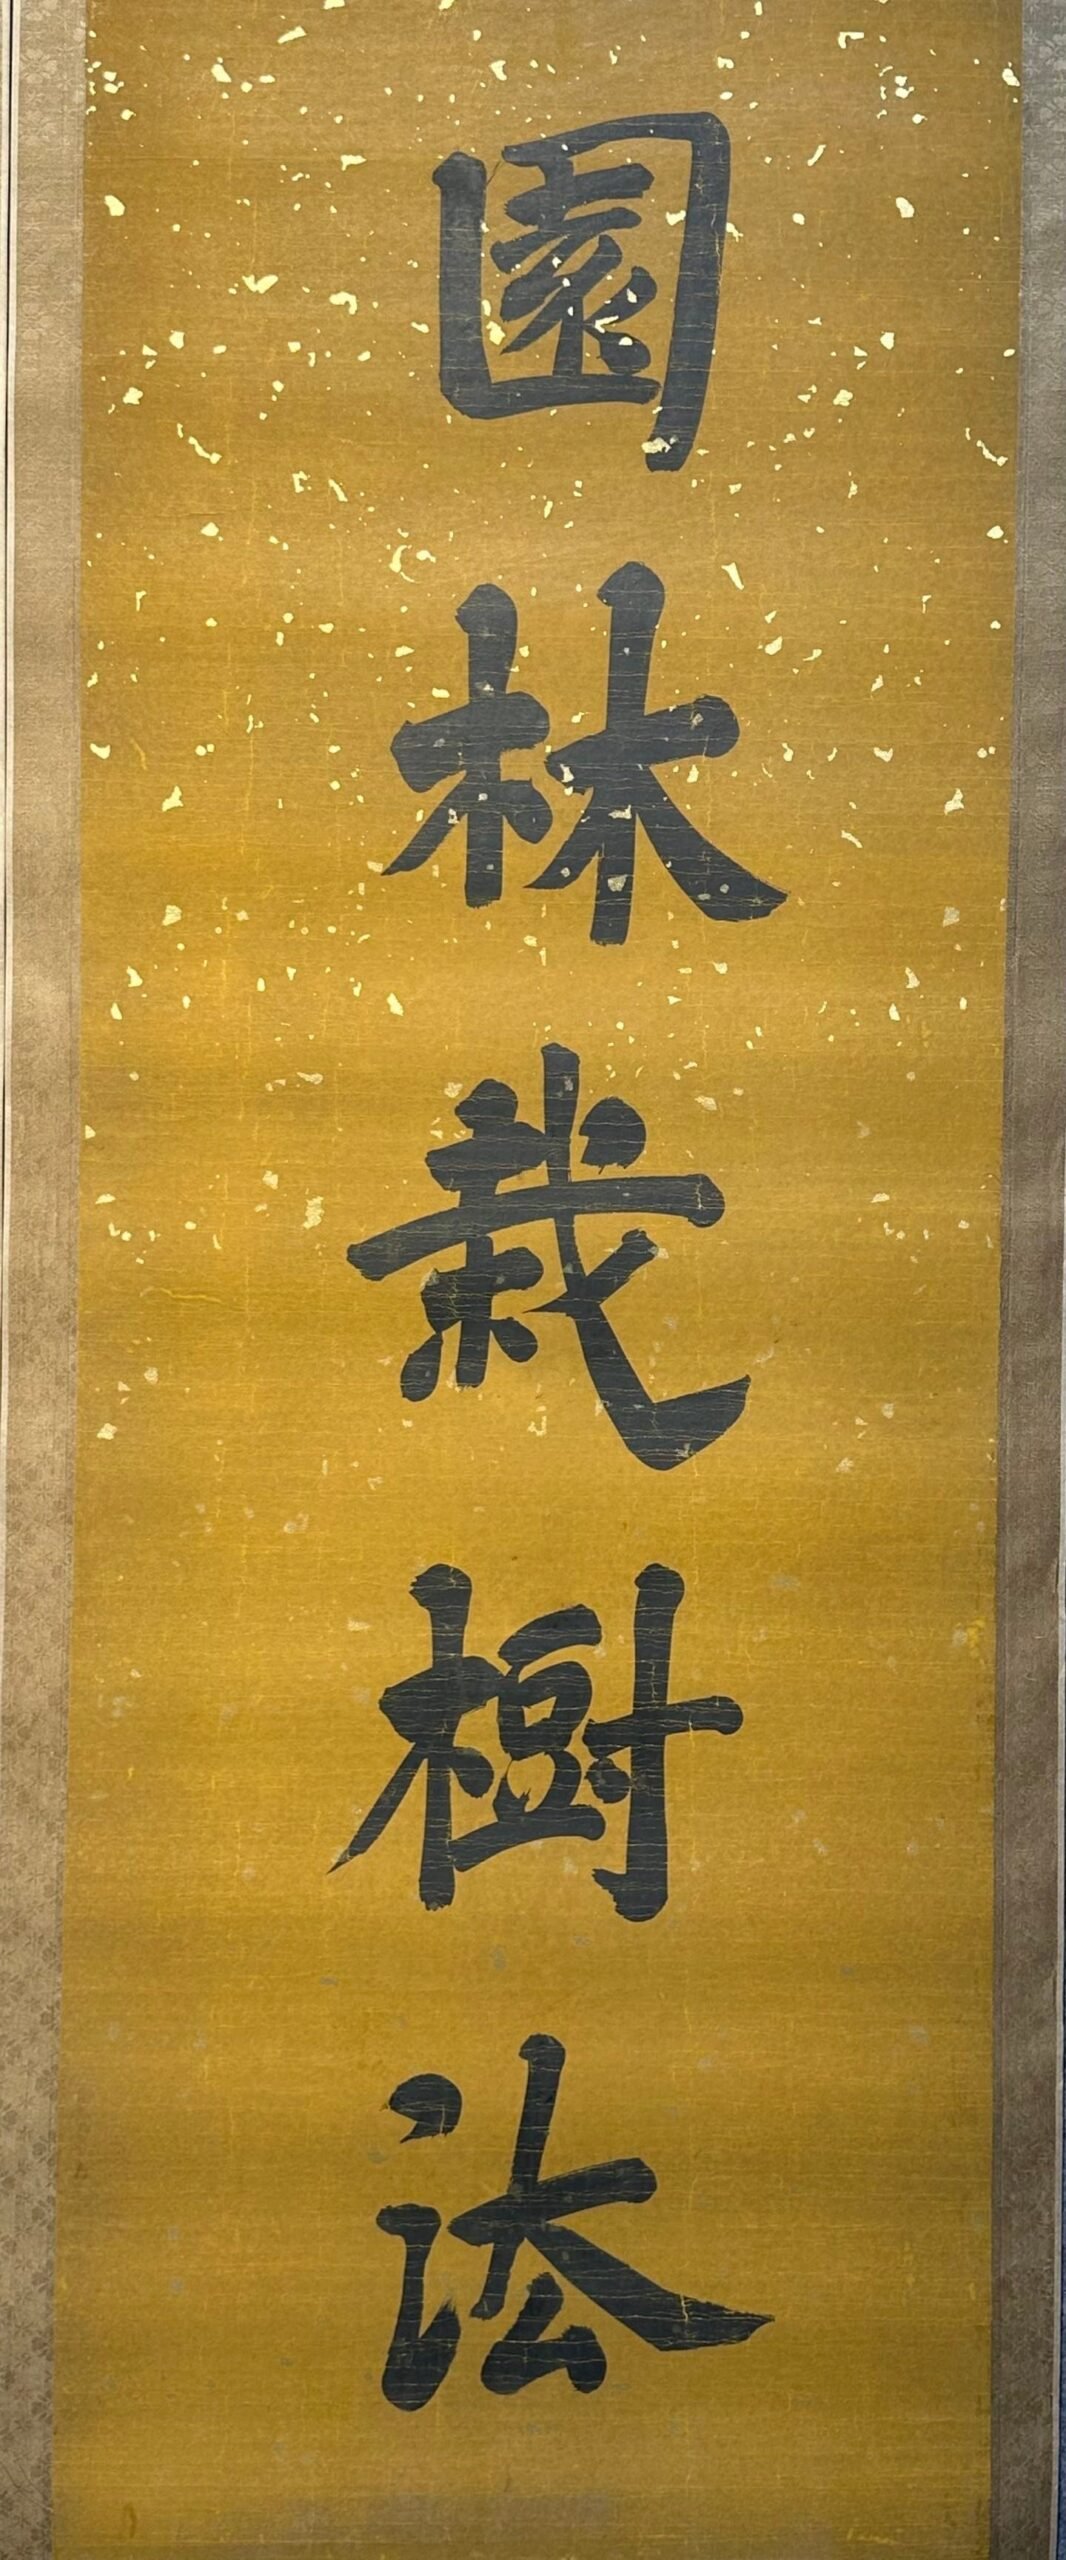 園林栽樹法